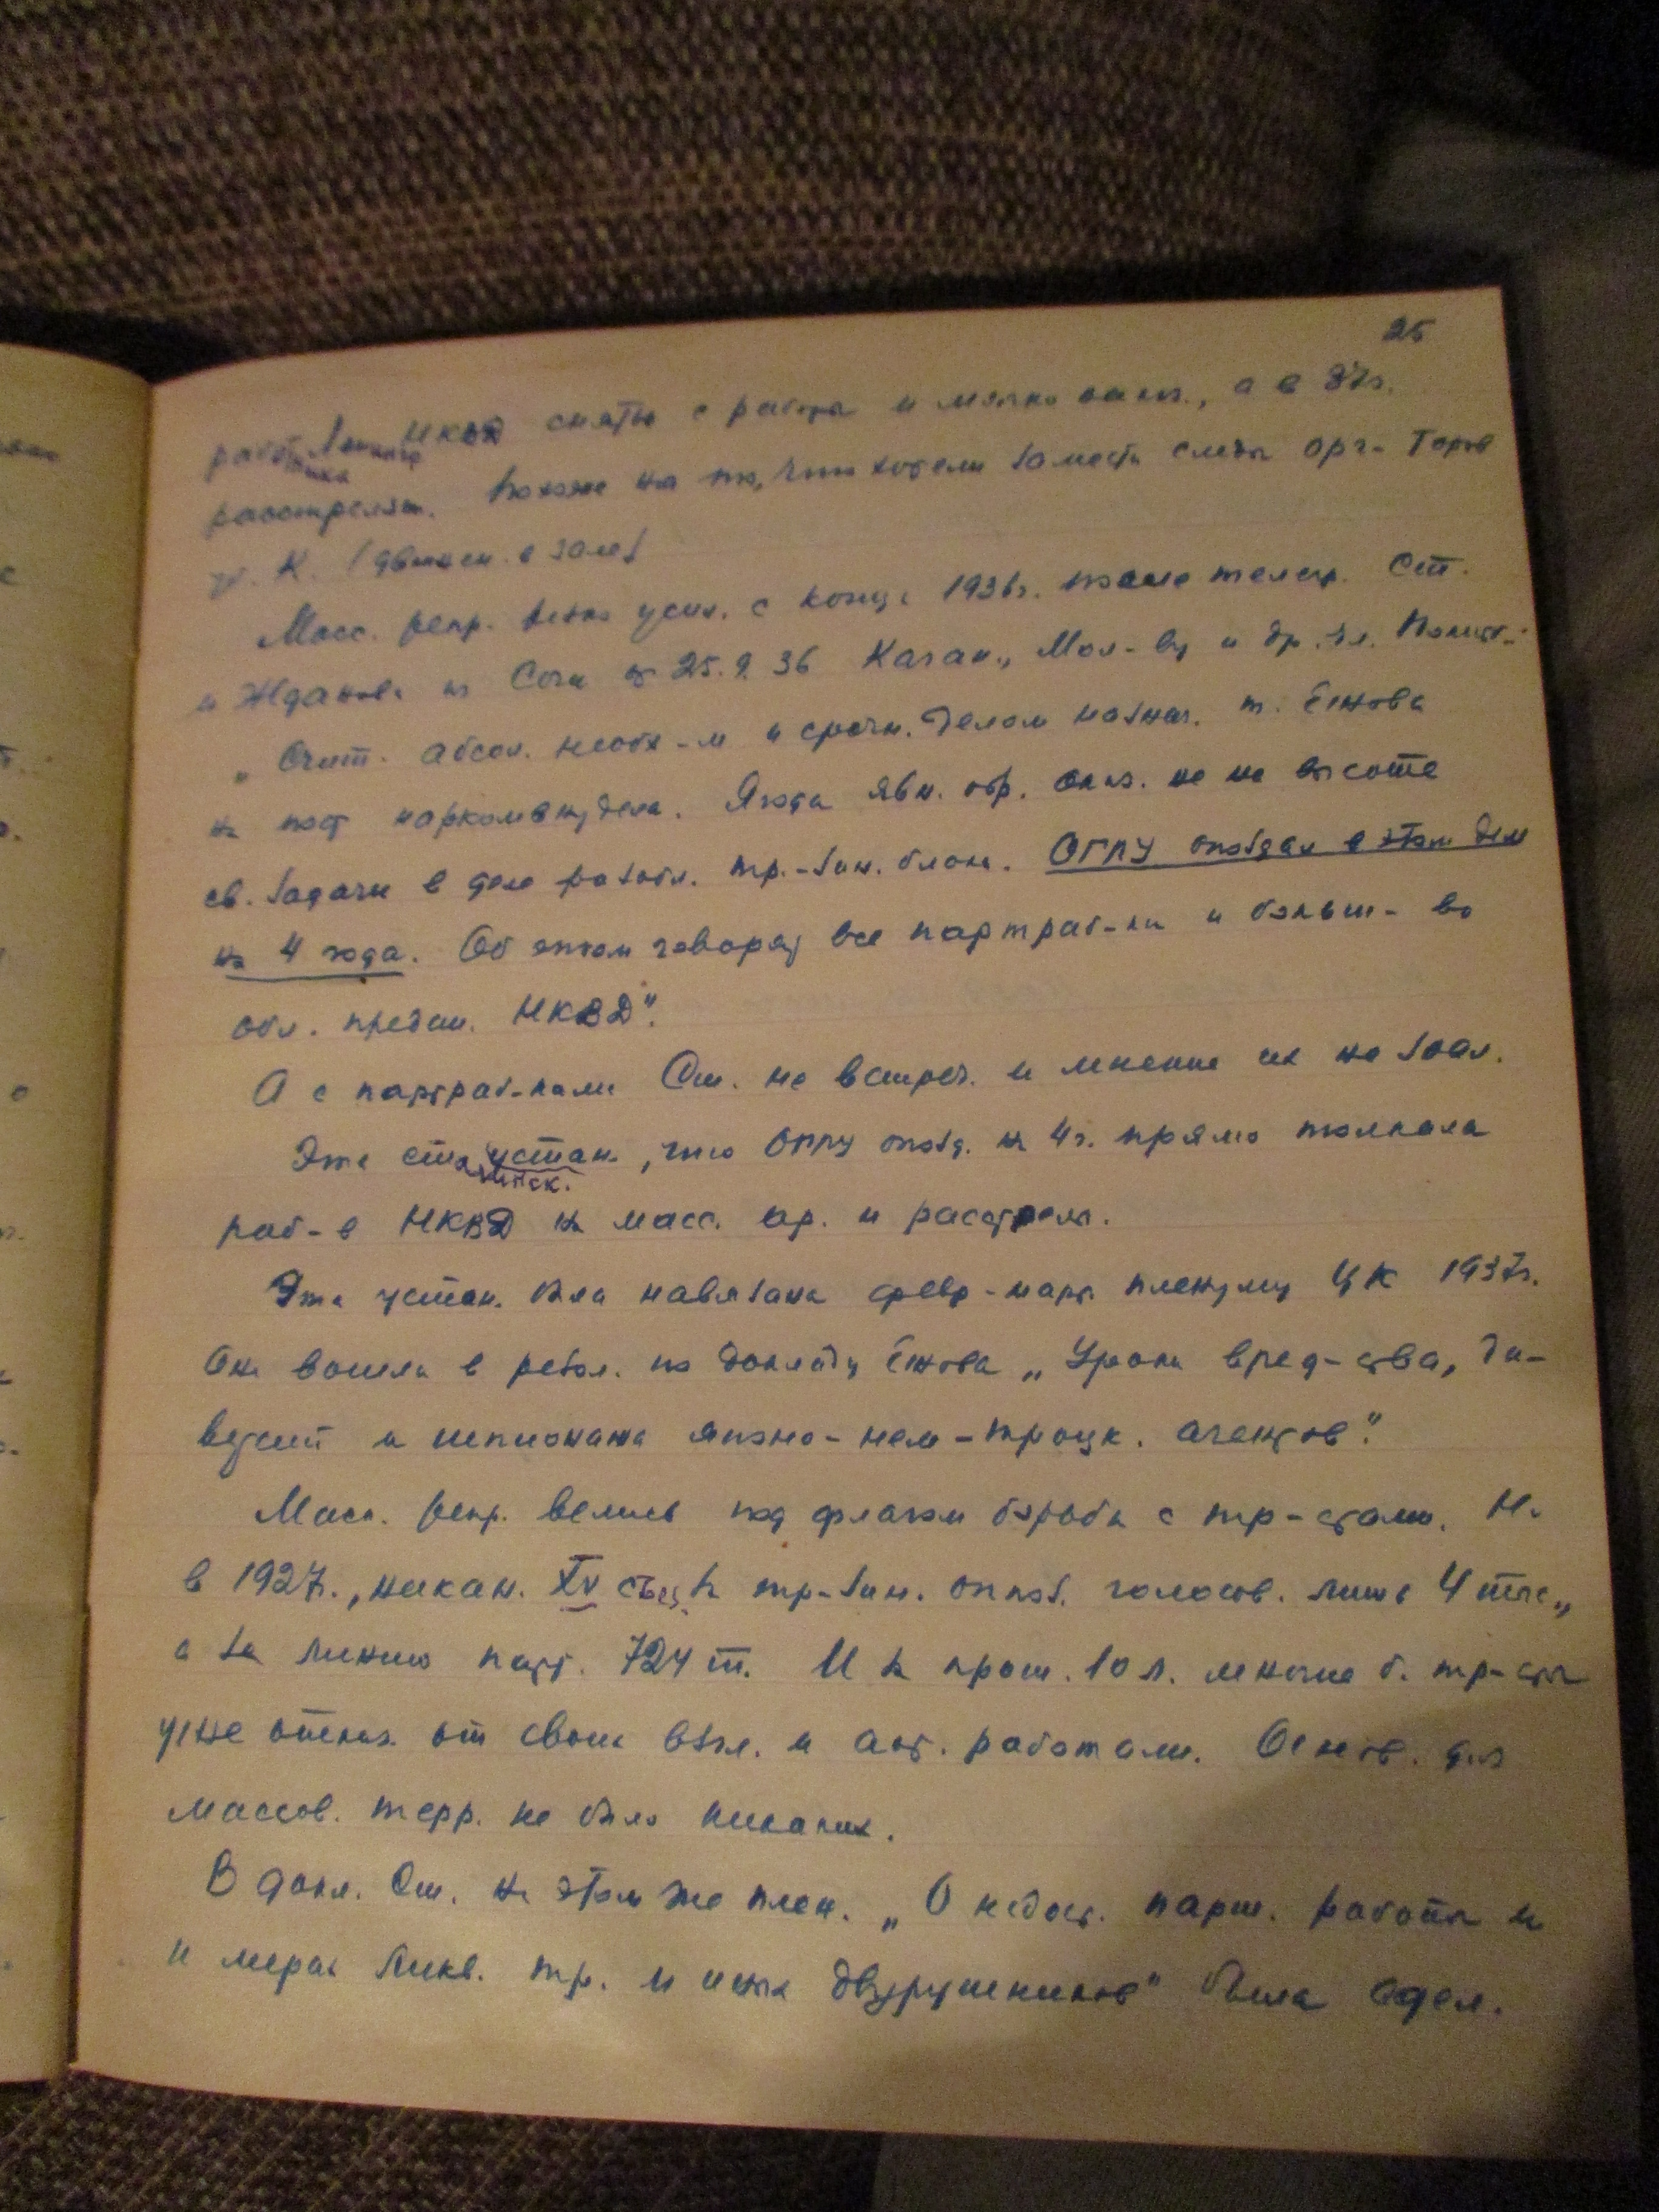 25
работника Ленингр НКВД сняты с работы и мягко наказ., а в 37г.
расстрелян. Похоже на то, что хотели замести следы орг-торов
уб. К. (движен. в зале)
Масс. репр. резко усил. с конца 1936г. после телегр. Ст.
и Жданова из Сочи от 25.9.36 Каган., Мол-ву и др. чл. Полит-:
„Счит. абсол. необх-м и срочн. делом назнач. т. Ежова
на пост наркомвнудела. Ягода явн. обр. оказ. не на высоте
св. задачи в деле разобл. тр.-зин. блока. ОГПУ опоздал в этом деле
на 4 года. Об этом говорят все партраб-ки и больш-во
обл. предст. НКВД".
А с партраб-ками Ст. не встреч. и мнение их не знал.
Эта сталинск. устан., что ОГПУ опозд. на 4г. прямо толкала
раб-в НКВД на масс. ар. и расстрелы.
Эта устан. была навязана февр-март. пленуму ЦК 1937г.
Она вошла в резол. по докладу Ежова „Уроки вред-ства, ди-
версий и шпионажа японо-нем-троцк. агентов".
Масс. репр. велись под флагом борьбы с тр-стами. Но
в 1927г., накан. XV съезда тр-зин. оппоз. голосов. лишь 4 тыс.,
а за линию парт. 724 т. И за прош. 10 л. многие б. тр-сты
уже отказ. от своих взгл. и акт. работали. Основ. для
массов. терр. не было никаких.
В докл. Ст. на этом же плен. „О недост. парт. работы и
и мерах ликв. тр. и иных двурушников" была сдел.